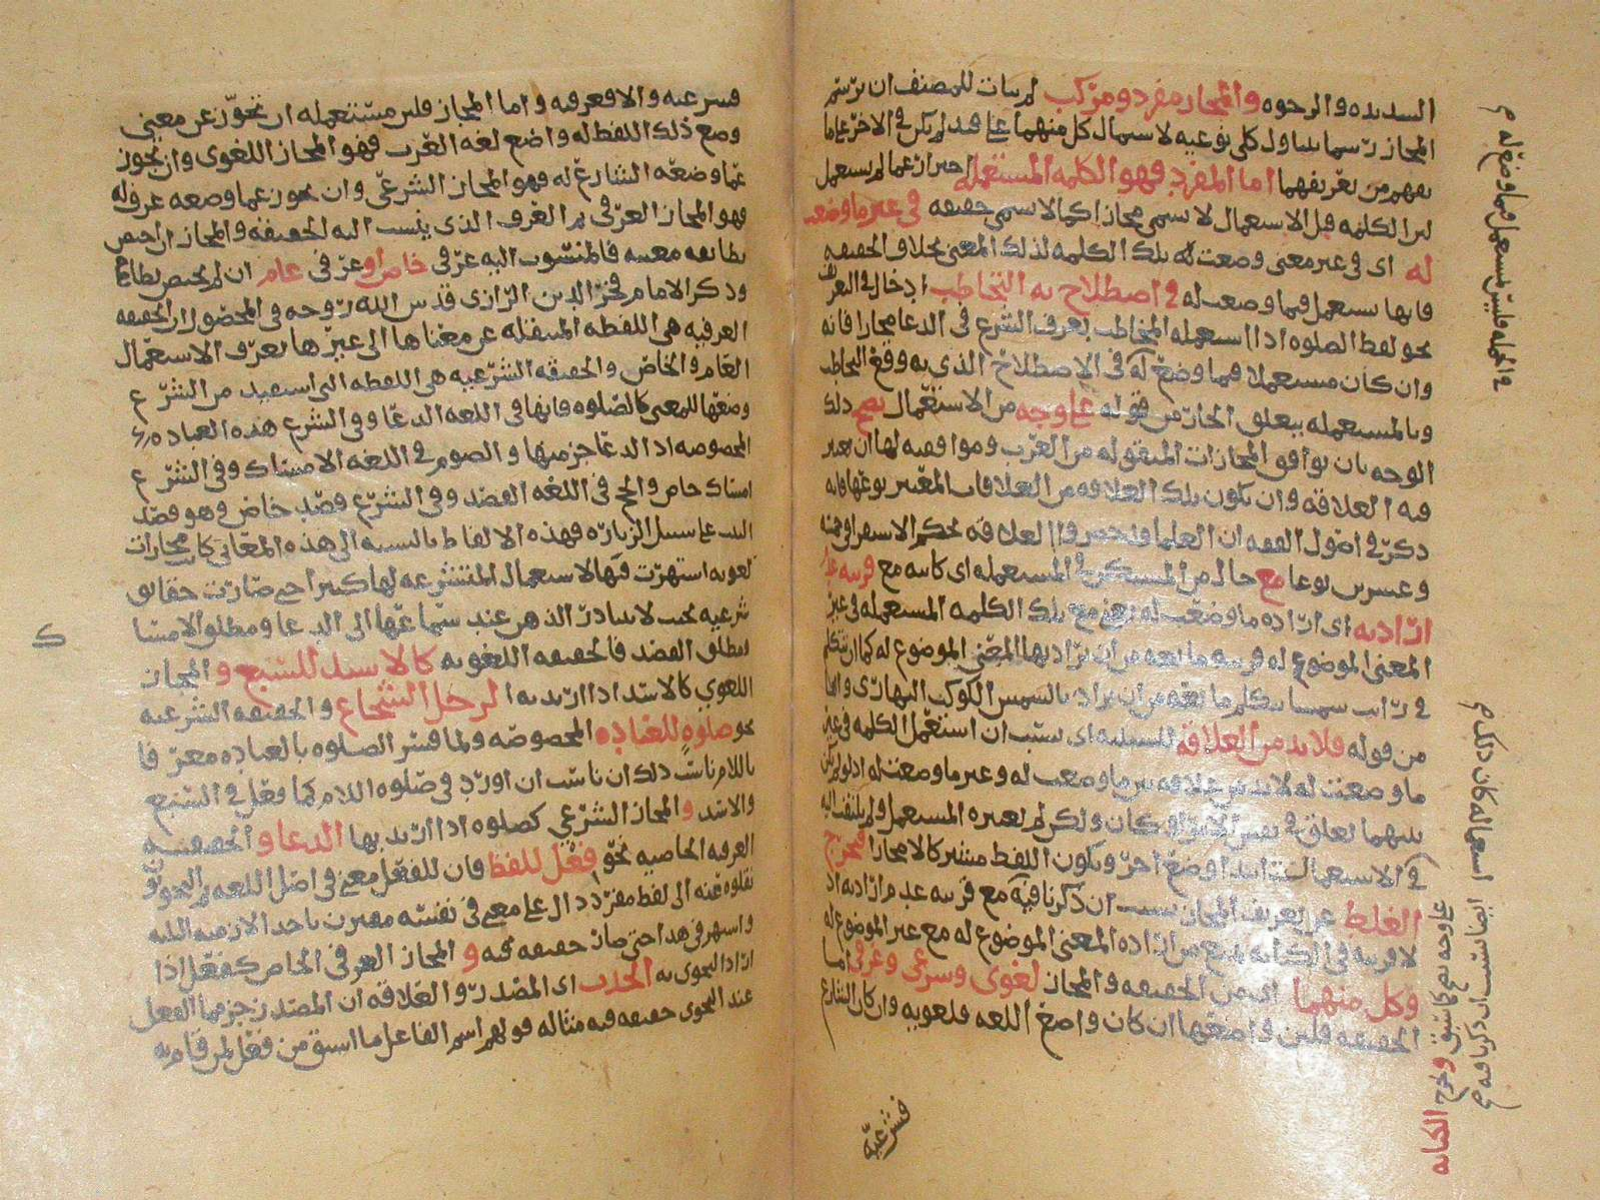 السديده والرخوه والمجاز مفرد ومركب لم يتات للمصنف ان يرسم
المجاز رسما يتناول كلي نوعيه لاشتمال كل منهما على قيد لم يكن في الاخر على ما
يفهم من تعريفهما اما المفرد فهو الكلمه المستعمله احتراز عما لم يستعمل
لان الكلمه قبل الاستعمال لا تسمى مجازا كما لا تسمى حقيقه في غير ما وضعت
له اى فى غير معنى وضعت له تلك الكلمه لذلك المعنى بخلاف الحقيقه
فانها تستعمل فيما وضعت له في اصطلاح به التخاطب ادخال في التعريف
نحو لفظ الصلوه اذا استعمله المخاطب بعرف الشرع فى الدعا مجازا فانه
وان كان مستعملا فيما وضع له فى الاصطلاح الذى به وقع التخاطب
وبالمستعمله يتعلق الجار من قوله على وجه من الاستعمال يصح ذلك
الوجه بان يوافق المجازات المنقوله من العرب وموافقته لها ان يعتبر
فيه العلاقه وان يكون تلك العلاقه من العلاقات المعتبر نوعها فانه
ذكر في اصول الفقه ان العلما حصروا العلاقه بحكم الاستقرا في خمسه
وعشرين نوعا مع حال من المستكن في المستعمله اى كائنه مع قرينه عدم
ارادته اى اراده ما وضعت له يعنى مع تلك الكلمه المستعمله فى غير
المعنى الموضوع له قرينه مانعه من ان يراد بها المعنى الموضوع له كما ان يتكلم
في رايت شمسا يتكلم مانعه من ان يراد بالشمس الكوكب النهارى والفا
من قوله فلا بد من العلاقه للسببيه اى بسبب ان استعمل الكلمه فى غير
ما وضعت له لا بد من علاقه بين ما وضعت له وغير ما وضعت له اذ لو لم يكن
بينهما تعلق في نفس الامر او كان ولكن لم يعتبره المستعمل ولم يلتفت اليه
في الاستعمال كان وضع اخر ويكون اللفظ مشتركا لا مجازا فيخرج
الغلط عن تعريف المجاز بسبب ان ذكرنا فيه مع قرينه عدم ارادته اذ
لا قرينه في الكنايه تمنع من اراده المعنى الموضوع له مع غير الموضوع له
وكل منهما اى من الحقيقه والمجاز لغوى وشرعى وعرفى اما
الحقيقه فلان واضعها ان كان واضع اللغه فلغويه وان كان الشارع
فشرعيه
في الجمله فليس مستعمل فيما وضع له
استعماله كان ذلك
ايضا بسبب ان ذكرنا فيه
على وجه يصح كما سبق وتخرج الكنايه
فشرعيه والا فعرفيه واما المجاز فلان مستعمله ان تجوز عن معنى
وضع ذلك اللفظ له واضع لغه العرب فهو المجاز اللغوى وان تجوز
عما وضعه الشارع له فهو المجاز الشرعى وان تجوز عما وضعه عرف له
فهو المجاز العرفى ثم العرف الذى ينسب اليه الحقيقه والمجاز ان اختص
بطائفه معينه فالمنسوب اليه عرفى خاص او عرفى عام ان لم يختص بطائفه
وذكر الامام فخر الدين الرازى قدس الله روحه فى المحصول ان الحقيقه
العرفيه هى اللفظه المنتقله عن معناها الى غيرها بعرف الاستعمال
العام والخاص والحقيقه الشرعيه هى اللفظه التى استفيد من الشرع
وضعها للمعنى كالصلوه فانها فى اللغه الدعا وفى الشرع هذه العباده
المخصوصه اذ الدعا جز منها والصوم فى اللغه الامساك وفى الشرع
امساك خاص والحج فى اللغه القصد وفى الشرع قصد خاص وهو قصد
البيت على سبيل الزياره فهذه الالفاظ بالنسبه الى هذه المعانى كانت مجازات
لغويه اشتهرت فيها لاستعمال المتشرعه لها كثيرا حتى صارت حقايق
شرعيه بحيث لا يتبادر الذهن عند سماعها الى الدعا ومطلق الامساك
ومطلق القصد فالحقيقه اللغويه كالاسد للسبع و المجاز
اللغوي كالاسد اذا اريد به الرجل الشجاع و الحقيقه الشرعيه
نحو صلوه للعباده المخصوصه ولما فسر الصلوه بالعباده معرفا
باللام ناسب ذلك ان يورد فى صلوه اللام كما فعل في السبع
والاسد و المجاز الشرعي كصلوه اذا اريد بها الدعا و الحقيقه
العرفيه الخاصه نحو فعل للفظ فان للفعل معنى فى اصل اللغه ثم النحويون
نقلوه عنه الى لفظ مفرد دال على معنى فى نفسه مقترن باحد الازمنه الثلثه
واشتهر فى هذا حتى صار حقيقه فيه و المجاز العرفى الخاص كفعل اذا
اراد النحوى به الحدث اى المصدر والعلاقه ان المصدر جز مما الفعل
عند النحوى حقيقه فيه مثاله قولهم اسم الفاعل ما اشتق من فعل لمن قام به